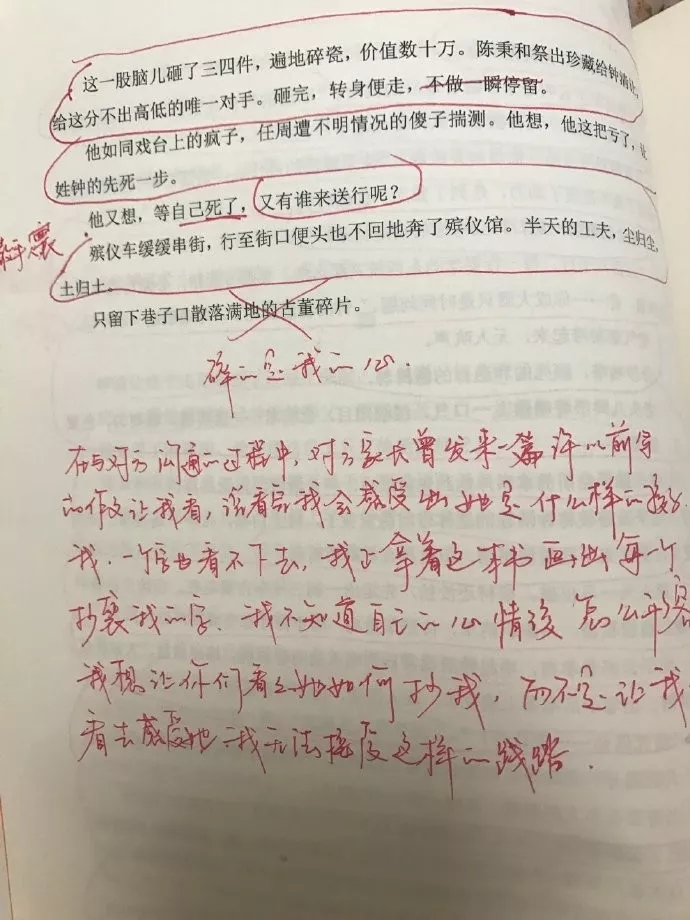 这一股脑儿砸了三四件，遍地碎瓷，价值数十万。陈秉和祭出珍藏给钟
给这分不出高低的唯一对手。砸完，转身便走，不做一瞬停留。
他如同戏台上的疯子，任周遭不明情况的傻子揣测。他想，他这把亏了，让
姓钟的先死一步。
他又想，等自己死了，又有谁来送行呢？
殡仪车缓缓串街，行至街口便头也不回地奔了殡仪馆。半天的工夫，尘归尘，
土归土。
只留下巷子口散落满地的古董碎片。
碎的是我的心.
在与对方沟通的过程中，对方家长曾发来一篇许以前写
的作文让我看，说看品我会感受出她是什么样的孩子
我，一个字也看不下去，我正拿着这本书画出每一个
抄襄我的字。我不知道自己的心情後怎么平
我想让你们看看她如何抄我，而不是让我
看去感受她.我无法接受这样的践踏.